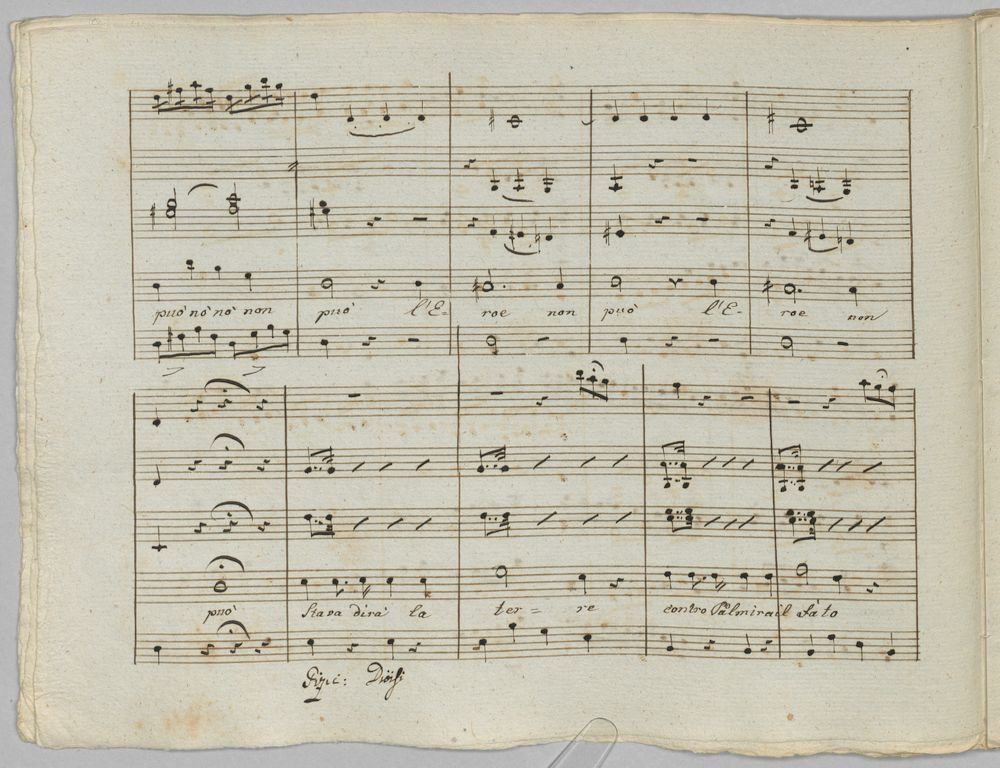 può nò nò non può l'E- roe non può l'E- roe non
può Stava dirà la ter= re contro Palmira il fato